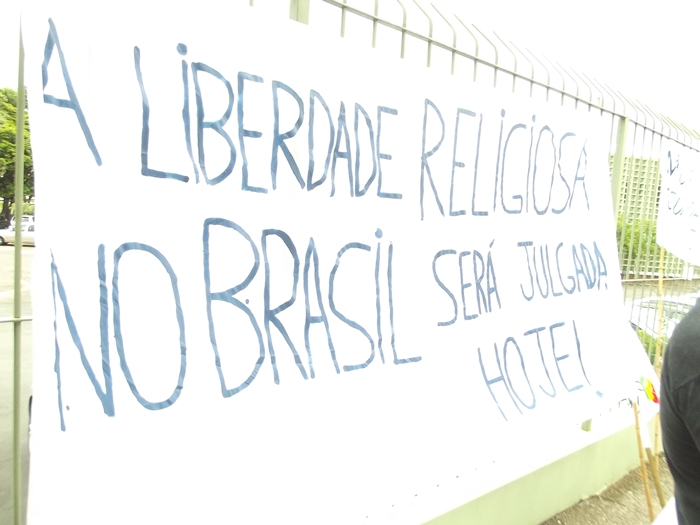 A LIBERDADE RELIGIOSA
NO BRASIL SERÁ JULGADA
HOJE!